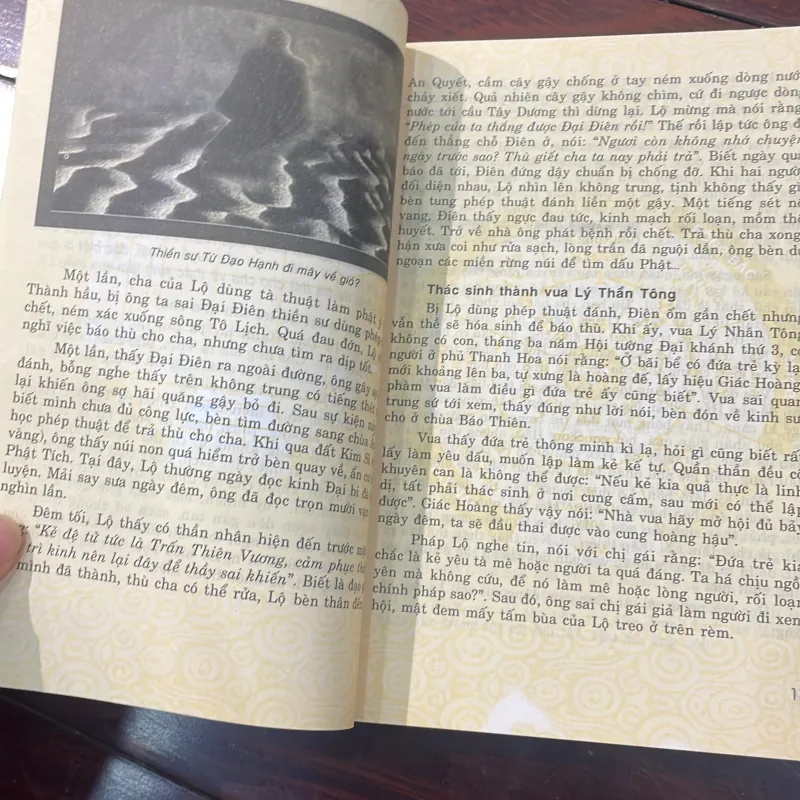 Thiền sư Từ Đạo Hạnh đi mây về gió?
Một lần, cha của Lộ dùng tà thuật làm phật ý
Thành hầu, bị ông ta sai Đại Điên thiền sư dùng phép
chết, ném xác xuống sông Tô Lịch. Quá đau đớn, Lộ
nghĩ việc báo thù cho cha, nhưng chưa tìm ra dịp tốt.
Một lần, thấy Đại Điên ra ngoài đường, ông gây sự
đánh, bỗng nghe thấy trên không trung có tiếng thét
lại khiến ông sợ hãi quăng gậy bỏ đi. Sau sự kiện này
biết mình chưa đủ công lực, bèn tìm đường sang chùa
học phép thuật để trả thù cho cha. Khi qua đất Kim
vàng), ông thấy núi non quá hiểm trở bèn quay về, ẩn cư
Phật Tích. Tại đây, Lộ thường ngày đọc kinh Đại bi đà
luyện. Mải say sưa ngày đêm, ông đã đọc trọn mười vạn
nghìn lần.
Đêm tối, Lộ thấy có thần nhân hiện đến trước mặt
“Kẻ đệ tử tức là Trấn Thiên Vương, cảm phục
trì kinh nên lại đây để thầy sai khiến”. Biết là đạo
mình đã thành, thù cha có thể rửa, Lộ bèn thân đến
An Quyết, cầm cây gậy chống ở tay ném xuống dòng nước
chảy xiết. Quả nhiên cây gậy không chìm, cứ đi ngược dòng
nước tới cầu Tây Dương thì dừng lại. Lộ mừng mà nói rằng
“Phép của ta thắng được Đại Điên rồi!” Thế rồi lập tức ông đi
đến thẳng chỗ Điên ở, nói: “Ngươi còn không nhớ chuyện
ngày trước sao? Thù giết cha ta nay phải trả”. Biết ngày quả
báo đã tới, Điên đứng dậy chuẩn bị chống đỡ. Khi hai người
đối diện nhau, Lộ nhìn lên không trung, tịnh không thấy gì
bèn tung phép thuật đánh liền một gậy. Một tiếng sét nổ
vang, Điên thấy ngực đau tức, kinh mạch rối loạn, mồm thổ
huyết. Trở về nhà ông phát bệnh rồi chết. Trả thù cha xong
hận xưa coi như rửa sạch, lòng trần đã nguội dần, ông bèn du
ngoạn các miền rừng núi để tìm dấu Phật...
Thác sinh thành vua Lý Thần Tông
Bị Lộ dùng phép thuật đánh, Điên ốm gần chết nhưng
vẫn thề sẽ hóa sinh để báo thù. Khi ấy, vua Lý Nhân Tông
không có con, tháng ba năm Hội tường Đại khánh thứ 3, có
người ở phủ Thanh Hoa nói rằng: “Ở bãi bể có đứa trẻ kỳ lạ
mới khoảng lên ba, tự xưng là hoàng đế, lấy hiệu Giác Hoàng
phàm vua làm điều gì đứa trẻ ấy cũng biết”. Vua sai quan
trung sứ tới xem, thấy đúng như lời nói, bèn đón về kinh sư
cho ở chùa Báo Thiên.
Vua thấy đứa trẻ thông minh kì lạ, hỏi gì cũng biết rất
lấy làm yêu dấu, muốn lập làm kẻ kế tự. Quần thần đều cố
khuyên can là không thể được: “Nếu kẻ kia quả thực là linh
dị, tất phải thác sinh ở nơi cung cấm, sau mới có thể lập
được”. Giác Hoàng thấy vậy nói: “Nhà vua hãy mở hội đủ bảy
ngày đêm, ta sẽ đầu thai được vào cung hoàng hậu”.
Pháp Lộ nghe tin, nói với chị gái rằng: “Đứa trẻ kia
chắc là kẻ yêu tà mê hoặc người ta quá đáng. Ta há chịu ngồi
yên mà không cứu, để nó làm mê hoặc lòng người, rối loạn
chính pháp sao?”. Sau đó, ông sai chị gái giả làm người đi xem
hội, mật đem mấy tấm bùa của Lộ treo ở trên rèm.